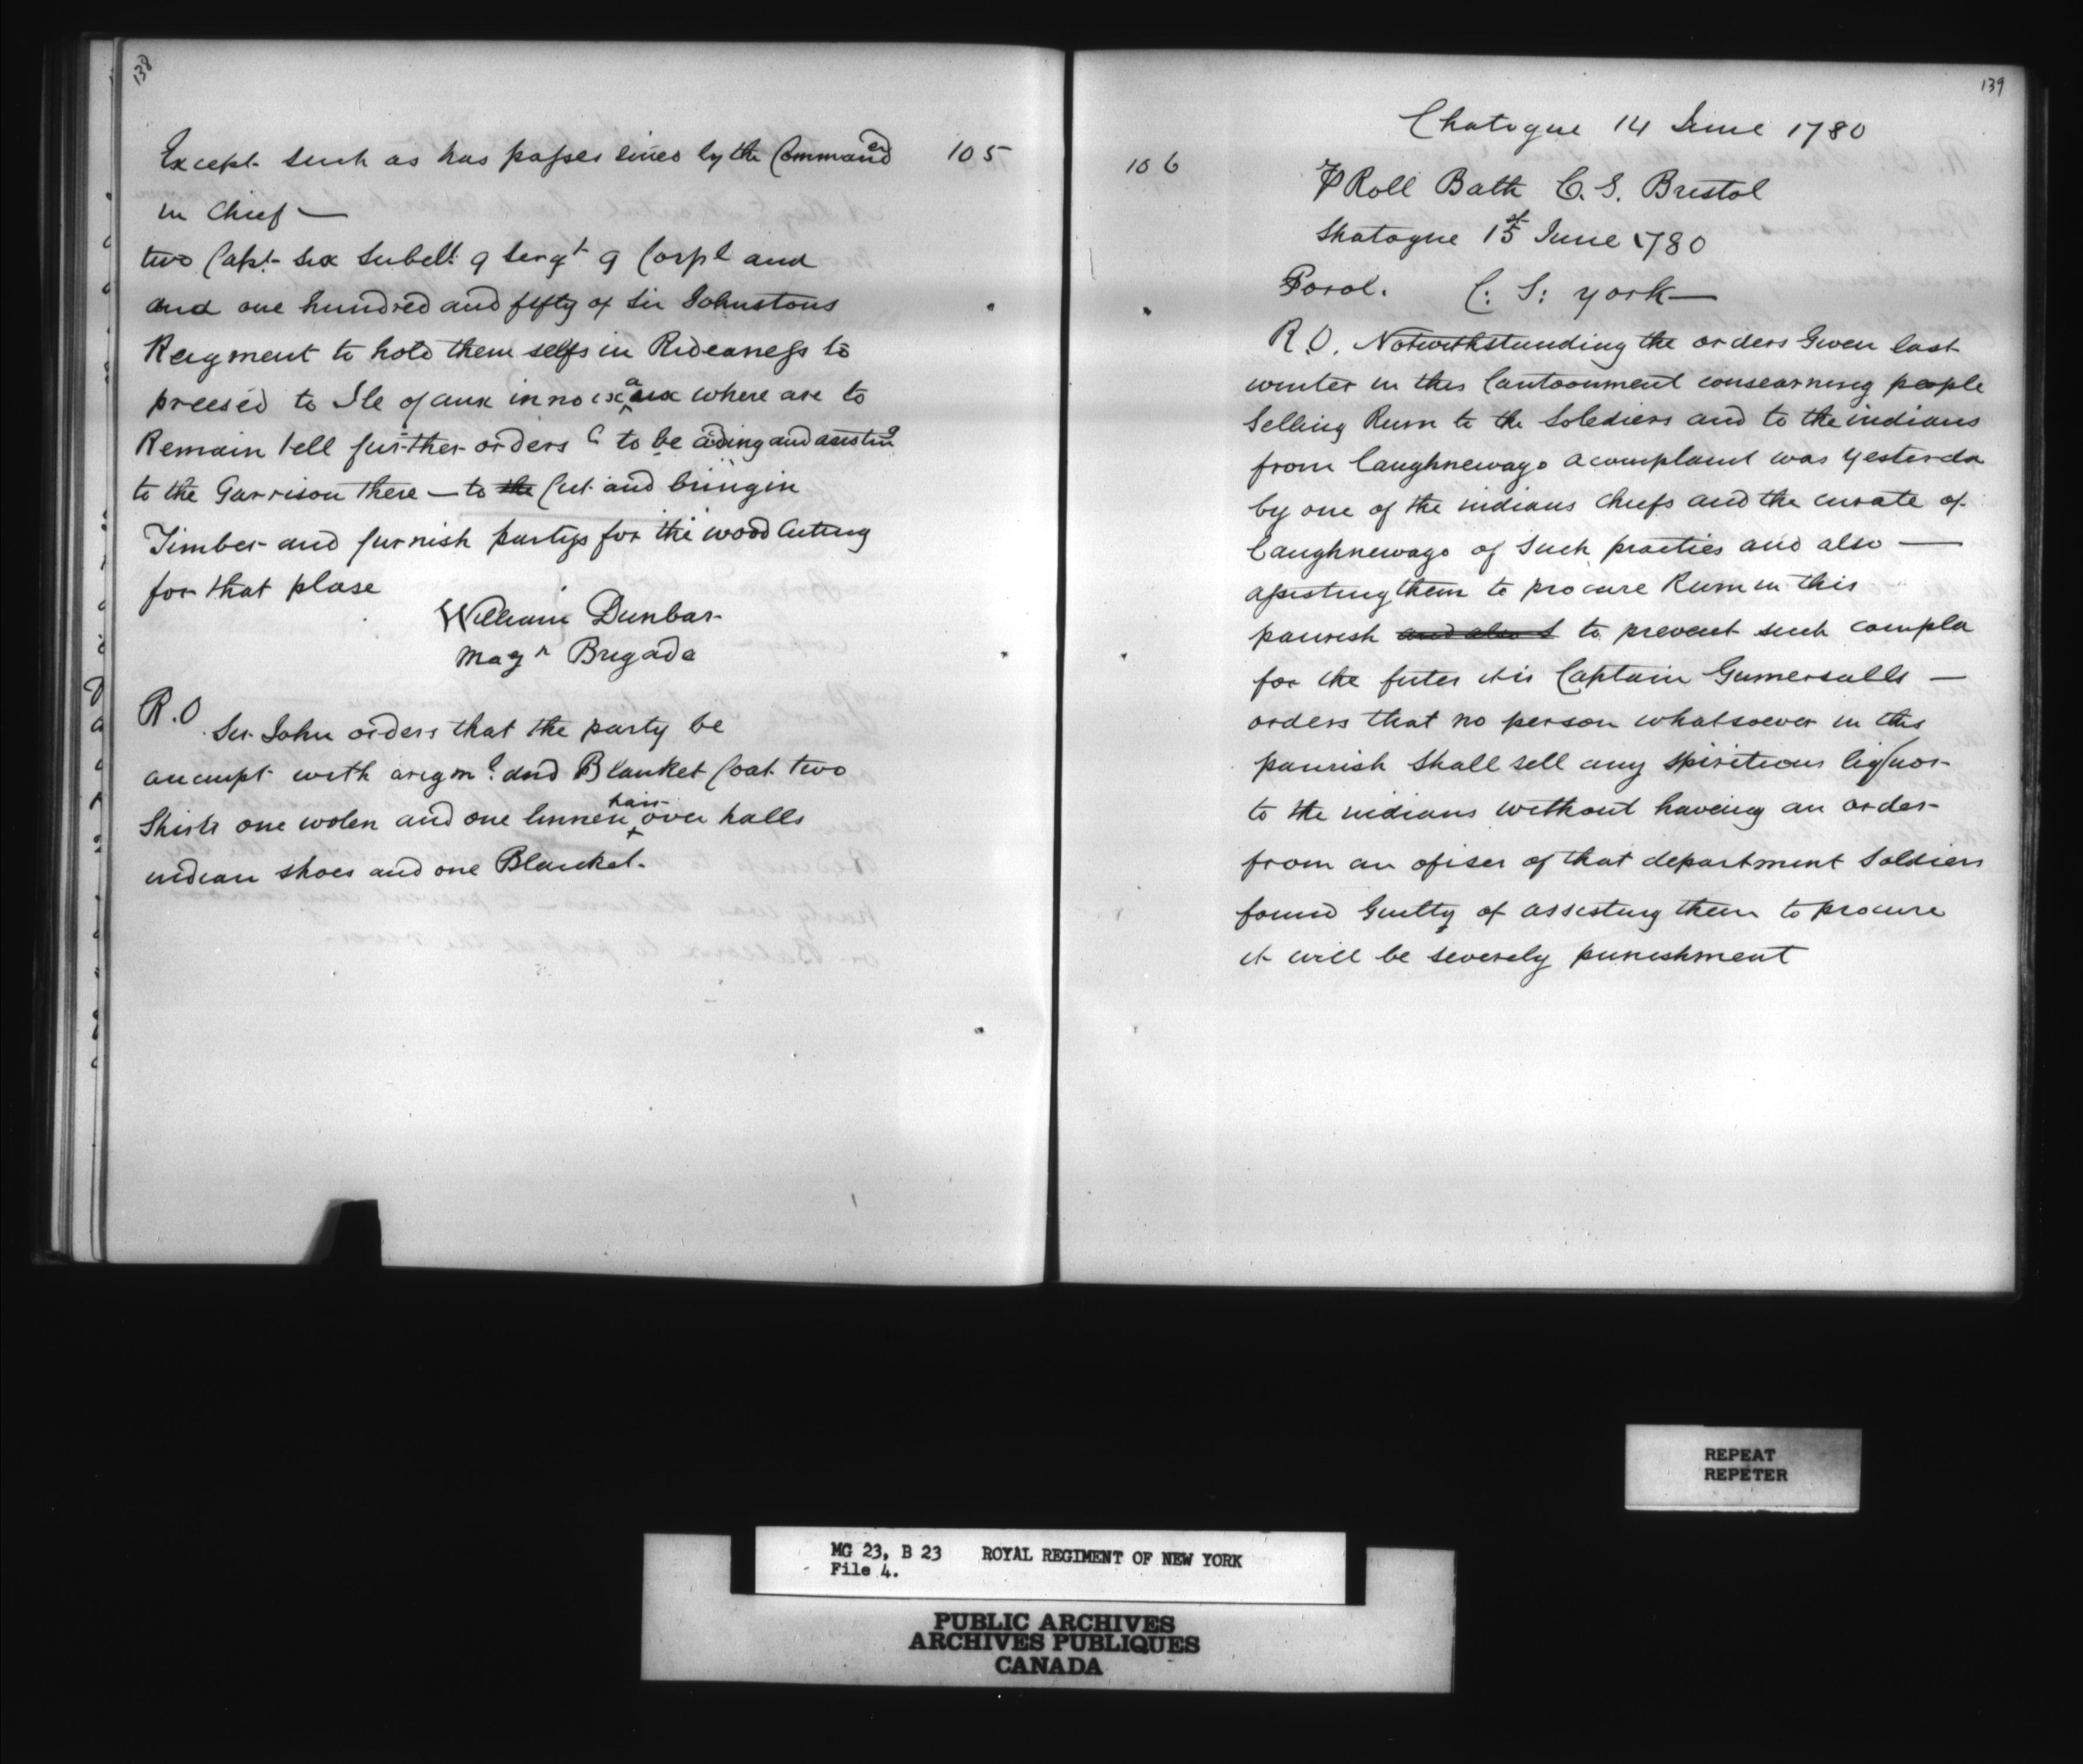 138
Except such as has passes sined by the Commander
105
in Chief —
two Capt. six Subelt. 9 sergt 9 Corpl and
and one hundred and fifty of Sir Johnstons
Reigment to hold them selfs in Rideaness to
preesed to Ile of aux in no ix a aux where are to
Remain tell further orders to be aiding and asisting
to the Garrison there — to the Cut and bring in
Timber and furnish partys for the wood Cuting
for that plase
William Dunbar
Magr Brigade
R.O Sir John orders that the party be
aucupt with arigmt. and Blanket Coat two
Shirts one wolen and one linnen pair over halls
indian shoes and one Blanket.
139
Chatogue 14 June 1780
106
PRoll Bath C. S. Bristol
Shatogue 15st June 1780
Porol. C: S: york —
R.O. Notwithstanding the orders Given last
winter in this Cantoonment consearning people
Selling Rum to the Solediers and to the indians
from Caughnewago a complaint was yesterda
by one of the indians chiefs and the curate of
Caughnewago of such practies and also —
assisting them to procure Rum in this
paurish and also t to prevent such compla
for the futer it is Captain Gumersalls —
orders that no person whatsoever in this
paurish shall sell any spiritious liquor
to the indians without having an order
from an ofiser of that department Soldiers
found Guilty of assisting them to procure
it will be severely punishment
REPEAT
REPETER
MG 23, B 23 ROYAL REGIMENT OF NEW YORK
File 4.
PUBLIC ARCHIVES
ARCHIVES PUBLIQUES
CANADA